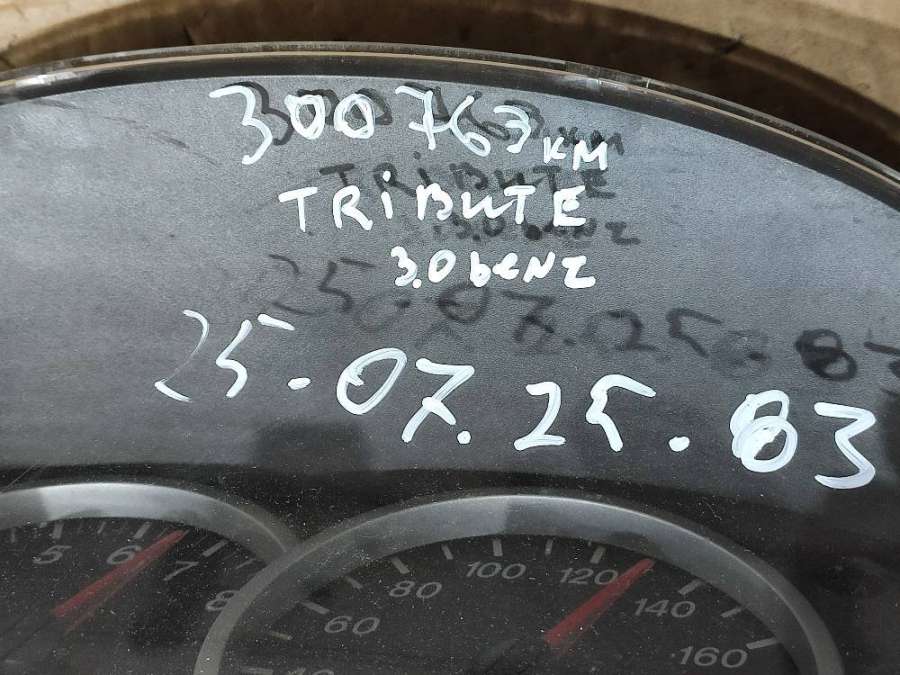 300763 км
TRiBUTE
3.0 benz
25.07.25.83
5 6 7 8
40 60 80 100 120 140 160